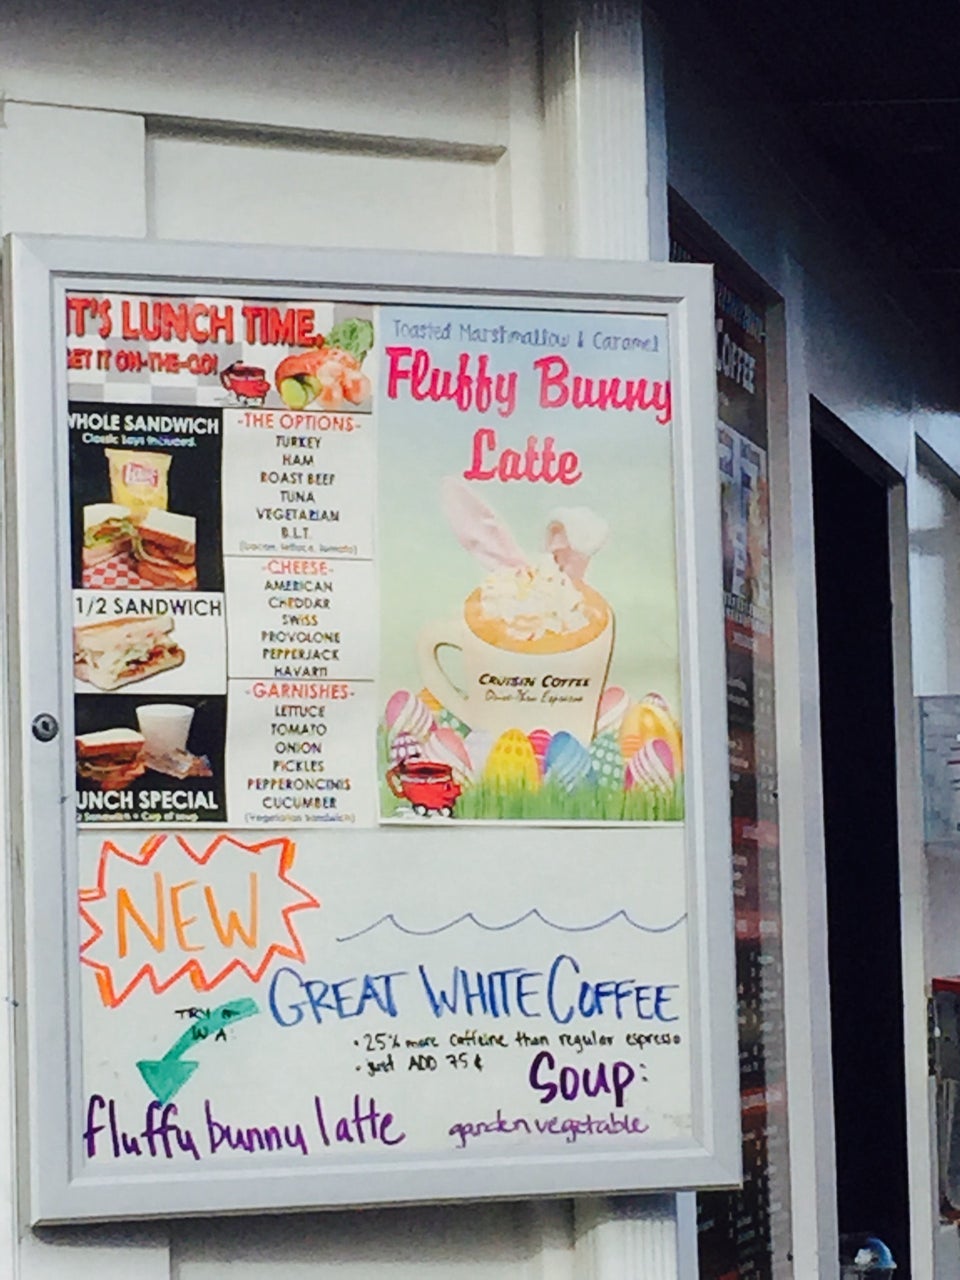 IT'S LUNCH TIME.
GET IT ON-THE-GO!
WHOLE SANDWICH
Classic Lays Included.
1/2 SANDWICH
LUNCH SPECIAL
Sandwich + Cup of soup
-THE OPTIONS-
TURKEY
HAM
ROAST BEEF
TUNA
VEGETARIAN
B.L.T.
(bacon, lettuce, tomato)
-CHEESE-
AMERICAN
CHEDDAR
SWISS
PROVOLONE
PEPPERJACK
HAVARTI
-GARNISHES-
LETTUCE
TOMATO
ONION
PICKLES
PEPPERONCINIS
CUCUMBER
(Vegetarian Sandwich)
Toasted Marshmallow & Caramel
Fluffy Bunny
Latte
CRUISIN COFFEE
Drive-Thru Espresso
NEW
GREAT WHITE COFFEE
TRY
• 25% more caffeine than regular espresso
• just ADD 75¢
fluffy bunny latte
Soup:
garden vegetable
COFFEE